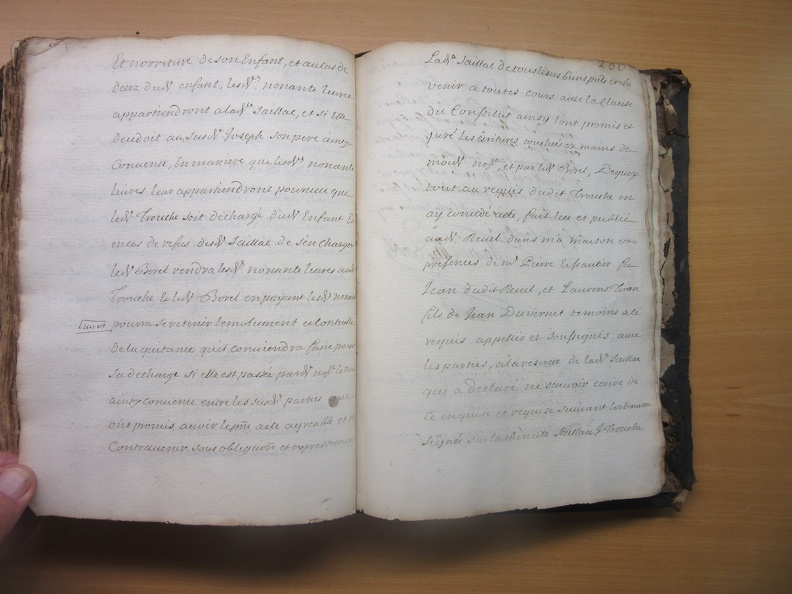 Et norriture de son Enfant, et au cas de
deux dud. enfant, lesd. nonante livres
appartiendront a lad. Saillac, et si elle
decedoit au susd. Joseph son pere ainsy
Convenu, En maniere que lesd. nonante
livres leur appartiendront pourveu que
led. Trouche soit décharge dud. Enfant Et
en cas de refus de lad. Saillac de s'en charger
led. Boret rendra lesd. nonante livres aud.
Trouche Et led. Boret en payant lesd. nonante
livres
pourra se retenir lemolument et controlle
de la quitance qu'il conviendra faire pour
sa decharge si elle est passée par nous
ainsy convenu entre les susd. parties
ont promis avoir le pnt acte agreable et
Contrevenir, sous obligation et expressement
250
Lad. Saillac de tous leurs biens pnts et
venir à toutes cours avec la Clause
du Constitut ainsy l'ont promis et
juré les écritures touchées es mains de
moid. nore et par led. Boret, Dequoy
tout au requis dudit Trouche en
ay concedé acte, fait leu et publié
aud. Revel dans ma maison en
presences de mr Pierre
Jean dudit Revel, et Laurens
fils de Jean Duvernet temoins a ce
requis appellés et sousignés, avec
les parties, à la reserve de lad. Saillac
qui a declaré ne scavoir ecrire de
ce enquise et requise suivant
Signés sur la minute Trouche